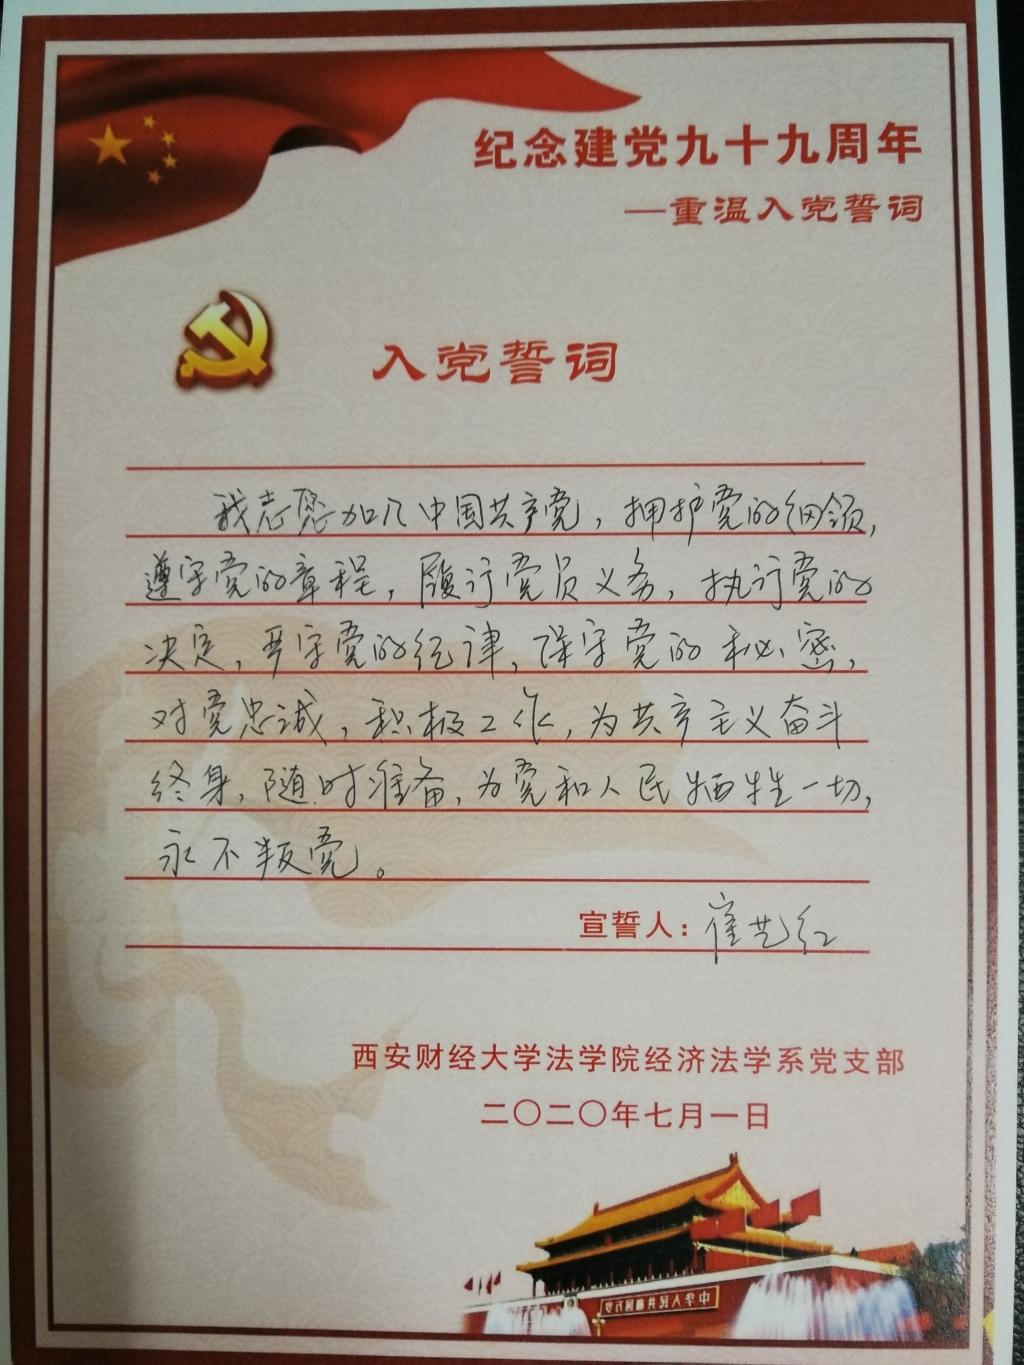 纪念建党九十九周年
—重温入党誓词
入党誓词
我志愿加入中国共产党，拥护党的纲领，
遵守党的章程，履行党员义务，执行党的
决定，严守党的纪律，保守党的秘密，
对党忠诚，积极工作，为共产主义奋斗
终身，随时准备，为党和人民牺牲一切，
永不叛党。
宣誓人：崔艺红
西安财经大学法学院经济法学系党支部
二〇二〇年七月一日
中华人民共和国万岁